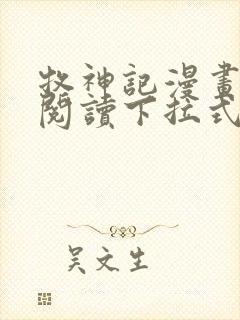 牧神記漫畫
閱讀下拉式
吳文生